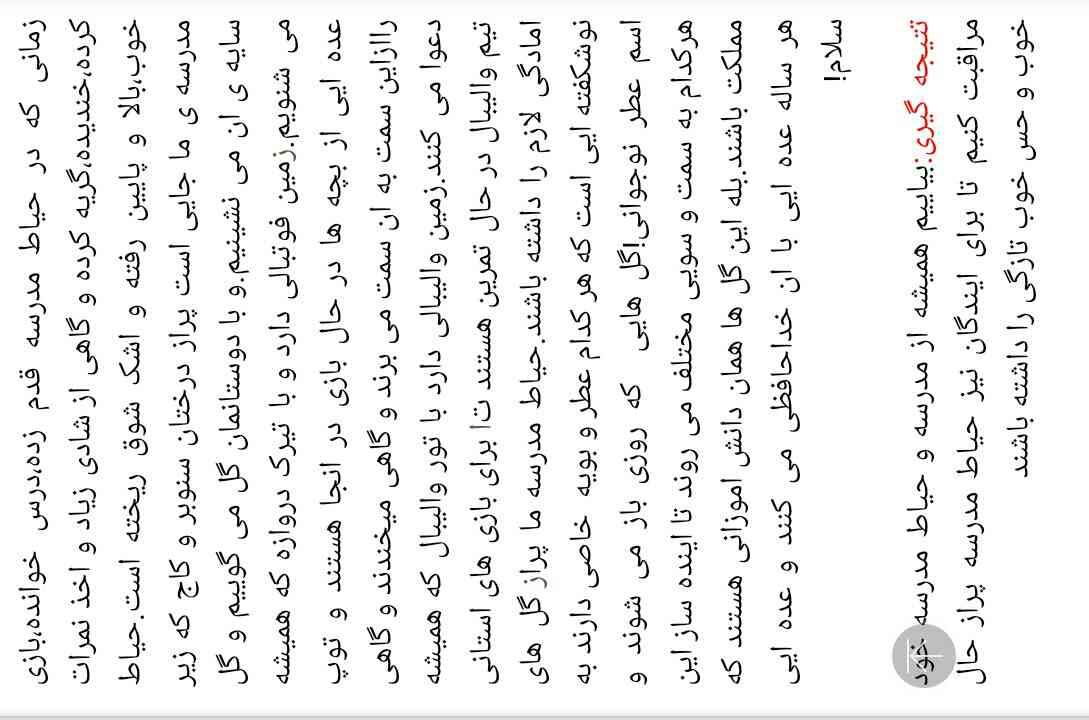 زمانی که در حیاط مدرسه قدم زده،درس خوانده،بازی
کرده،خندیده،گریه کرده و گاهی از شادی زیاد و اخذ نمرات
خوب،بالا و پایین رفته و اشک شوق ریخته است.حیاط
مدرسه ی ما جایی است پراز درختان سنوبر و کاج که زیر
سایه ی ان می نشینیم.و با دوستانمان گل می گوییم و گل
می شنویم.زمین فوتبالی دارد و با تیرک دروازه که همیشه
عده ایی از بچه ها در حال بازی در انجا هستند و توپ
رااز‌این سمت به ان سمت می برند و گاهی میخندند و گاهی
دعوا می کنند.زمین والیبالی دارد با تور والیبال که همیشه
تیم والیبال در حال تمرین هستند تا برای بازی های استانی
امادگی لازم را داشته باشند.حیاط مدرسه ما پراز گل های
نوشکفته ایی است که هر کدام عطر و بویه خاصی دارند به
اسم عطر نوجوانی!گل هایی که روزی باز می شوند و
هرکدام به سمت و سویی مختلف می روند تا اینده ساز این
مملکت باشند.بله این گل ها همان دانش اموزانی هستند که
هر ساله عده ایی با ان خداحافظی می کنند و عده ایی
سلام!
نتیجه گیری:بیاییم همیشه از مدرسه و حیاط مدرسه خود
مراقبت کنیم تا برای ایندگان نیز حیاط مدرسه پراز حال
خوب و حس خوب تازگی را داشته باشند